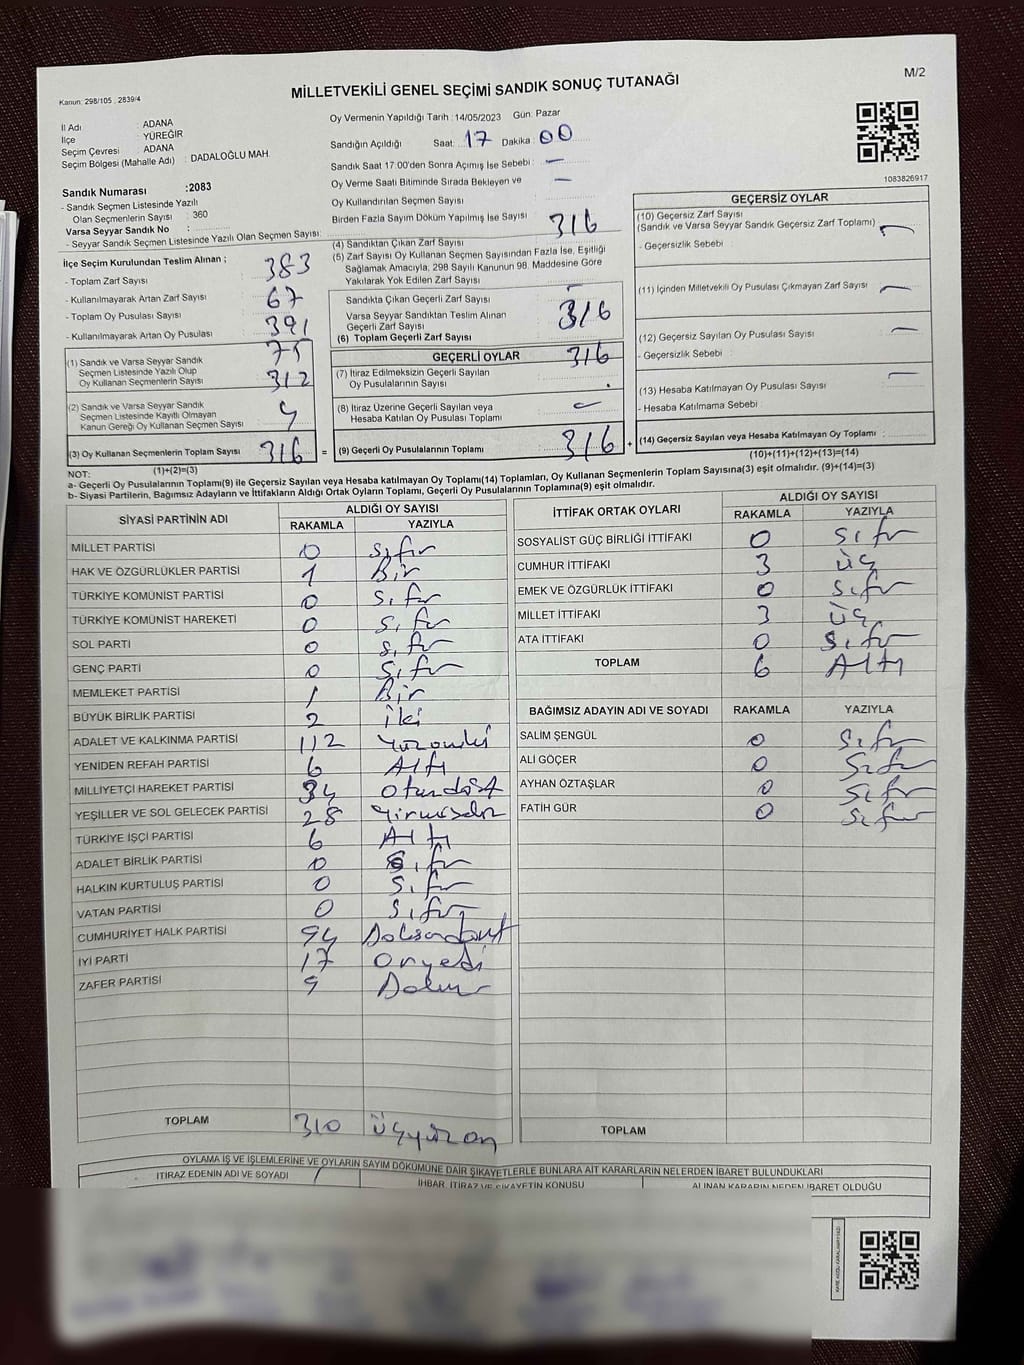 M/2
MİLLETVEKİLİ GENEL SEÇİMİ SANDIK SONUÇ TUTANAĞI
Kanun: 298/105 , 2839/4
İl Adı : ADANA
İlçe : YÜREĞİR
Seçim Çevresi : ADANA
Seçim Bölgesi (Mahalle Adı) : DADALOĞLU MAH
Oy Vermenin Yapıldığı Tarih : 14/05/2023 Gün: Pazar
Sandığın Açıldığı Saat: 17 Dakika: 00
Sandık Saat 17:00'den Sonra Açımış İse Sebebi : —
Oy Verme Saati Bitiminde Sırada Bekleyen ve —
Oy Kullandırılan Seçmen Sayısı
Birden Fazla Sayım Döküm Yapılmış İse Sayısı
1083826917
Sandık Numarası :2083
- Sandık Seçmen Listesinde Yazılı
Olan Seçmenlerin Sayısı : 360
Varsa Seyyar Sandık No :
- Seyyar Sandık Seçmen Listesinde Yazılı Olan Seçmen Sayısı:
İlçe Seçim Kurulundan Teslim Alınan ;
- Toplam Zarf Sayısı : 383
- Kullanılmayarak Artan Zarf Sayısı : 67
- Toplam Oy Pusulası Sayısı : 391
- Kullanılmayarak Artan Oy Pusulası : 75
(1) Sandık ve Varsa Seyyar Sandık
Seçmen Listesinde Yazılı Olup
Oy Kullanan Seçmenlerin Sayısı : 312
(2) Sandık ve Varsa Seyyar Sandık
Seçmen Listesinde Kayıtlı Olmayan
Kanun Gereği Oy Kullanan Seçmen Sayısı : 4
(3) Oy Kullanan Seçmenlerin Toplam Sayısı 316 =
(1)+(2)=(3)
(4) Sandıktan Çıkan Zarf Sayısı 316
(5) Zarf Sayısı Oy Kullanan Seçmen Sayısından Fazla İse, Eşitliği
Sağlamak Amacıyla, 298 Sayılı Kanunun 98. Maddesine Göre
Yakılarak Yok Edilen Zarf Sayısı
Sandıkta Çıkan Geçerli Zarf Sayısı
Varsa Seyyar Sandıktan Teslim Alınan
Geçerli Zarf Sayısı
(6) Toplam Geçerli Zarf Sayısı 316
GEÇERLİ OYLAR
(7) İtiraz Edilmeksizin Geçerli Sayılan
Oy Pusulalarının Sayısı : 316
(8) İtiraz Üzerine Geçerli Sayılan veya
Hesaba Katılan Oy Pusulası Toplamı : —
(9) Geçerli Oy Pusulalarının Toplamı : 316 +
GEÇERSİZ OYLAR
(10) Geçersiz Zarf Sayısı
(Sandık ve Varsa Seyyar Sandık Geçersiz Zarf Toplamı) —
- Geçersizlik Sebebi :
(11) İçinden Milletvekili Oy Pusulası Çıkmayan Zarf Sayısı —
(12) Geçersiz Sayılan Oy Pusulası Sayısı —
- Geçersizlik Sebebi :
(13) Hesaba Katılmayan Oy Pusulası Sayısı —
- Hesaba Katılmama Sebebi :
(14) Geçersiz Sayılan veya Hesaba Katılmayan Oy Toplamı :
(10)+(11)+(12)+(13)=(14)
NOT:
a- Geçerli Oy Pusulalarının Toplamı(9) ile Geçersiz Sayılan veya Hesaba Katılmayan Oy Toplamı(14) Toplamları, Oy Kullanan Seçmenlerin Toplam Sayısına(3) eşit olmalıdır. (9)+(14)=(3)
b- Siyasi Partilerin, Bağımsız Adayların ve İttifakların Aldığı Ortak Oyların Toplamı, Geçerli Oy Pusulalarının Toplamına(9) eşit olmalıdır.
SİYASİ PARTİNİN ADI ALDIĞI OY SAYISI
RAKAMLA YAZIYLA
MİLLET PARTİSİ 0 Sıfır
HAK VE ÖZGÜRLÜKLER PARTİSİ 1 Bir
TÜRKİYE KOMÜNİST PARTİSİ 0 Sıfır
TÜRKİYE KOMÜNİST HAREKETİ 0 Sıfır
SOL PARTİ 0 Sıfır
GENÇ PARTİ 0 Sıfır
MEMLEKET PARTİSİ 1 Bir
BÜYÜK BİRLİK PARTİSİ 2 iki
ADALET VE KALKINMA PARTİSİ 112 Yüzoniki
YENİDEN REFAH PARTİSİ 6 Altı
MİLLİYETÇİ HAREKET PARTİSİ 34 Otuzdört
YEŞİLLER VE SOL GELECEK PARTİSİ 28 Yirmisekiz
TÜRKİYE İŞÇİ PARTİSİ 6 Altı
ADALET BİRLİK PARTİSİ 0 Sıfır
HALKIN KURTULUŞ PARTİSİ 0 Sıfır
VATAN PARTİSİ 0 Sıfır
CUMHURİYET HALK PARTİSİ 94 Doksandört
İYİ PARTİ 17 Onyedi
ZAFER PARTİSİ 9 Dokuz
TOPLAM 310 Üçyüzon
İTTİFAK ORTAK OYLARI ALDIĞI OY SAYISI
RAKAMLA YAZIYLA
SOSYALİST GÜÇ BİRLİĞİ İTTİFAKI 0 Sıfır
CUMHUR İTTİFAKI 3 Üç
EMEK VE ÖZGÜRLÜK İTTİFAKI 0 Sıfır
MİLLET İTTİFAKI 3 Üç
ATA İTTİFAKI 0 Sıfır
TOPLAM 6 Altı
BAĞIMSIZ ADAYIN ADI VE SOYADI RAKAMLA YAZIYLA
SALİM ŞENGÜL 0 Sıfır
ALİ GÖÇER 0 Sıfır
AYHAN ÖZTAŞLAR 0 Sıfır
FATİH GÜR 0 Sıfır
TOPLAM
OYLAMA İŞ VE İŞLEMLERİNE VE OYLARIN SAYIM DÖKÜMÜNE DAİR ŞİKAYETLERLE BUNLARA AİT KARARLARIN NELERDEN İBARET BULUNDUKLARI
İTİRAZ EDENİN ADI VE SOYADI İHBAR, İTİRAZ VE ŞİKAYETİN KONUSU ALINAN KARARIN NEDEN İBARET OLDUĞU